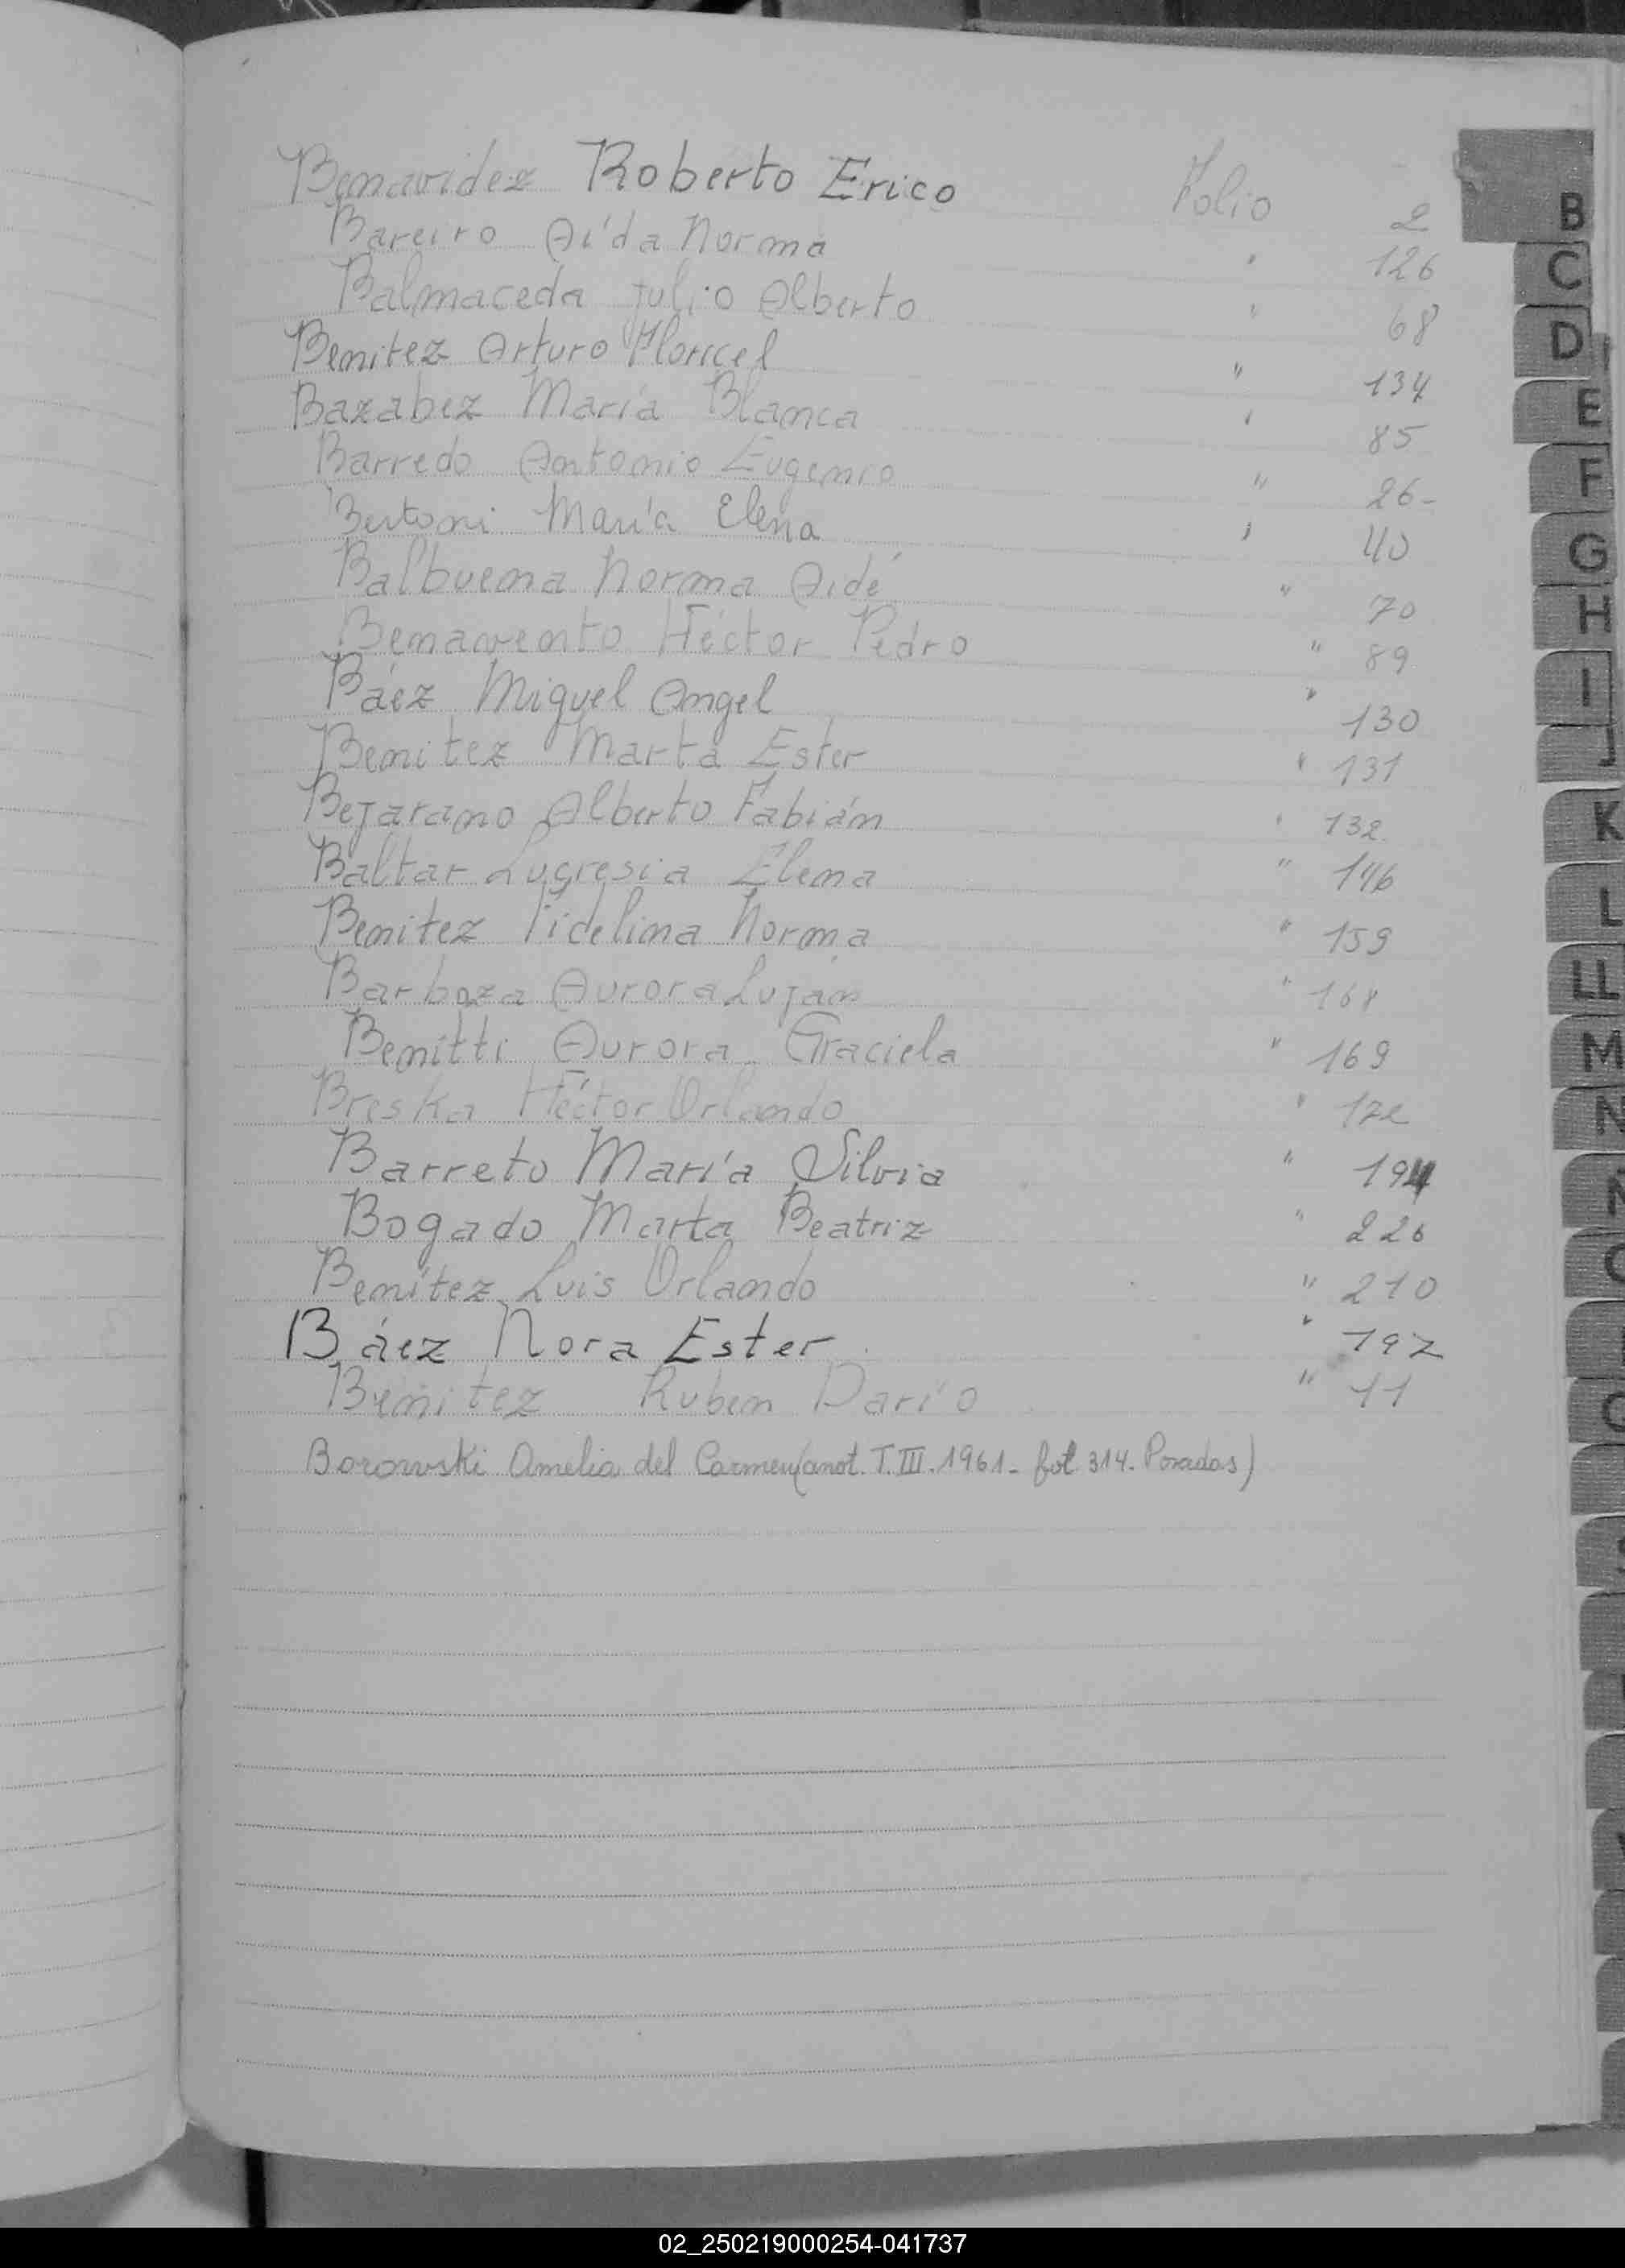 Benavidez Roberto Erico Folio 2
Bareiro Aída Norma " 126
Balmaceda Julio Alberto " 68
Benitez Arturo Floricel " 134
Bazabez María Blanca " 85
Barredo Antonio Eugenio " 26-
Bertoni María Elena " 40
Balbuena Norma Aidé " 70
Benavento Héctor Pedro " 89
Báez Miguel Angel " 130
Benitez Marta Ester " 131
Bejarano Alberto Fabián " 132
Baltar Lucresia Elena " 146
Benitez Fidelina Norma " 159
Barboza Aurora Luján " 168
Benitti Aurora Graciela " 169
Breska Héctor Orlando " 172
Barreto María Silvia " 194
Bogado Marta Beatriz " 226
Benítez Luis Orlando " 210
Báez Nora Ester " 197
Benitez Ruben Darío " 11
Borowski Amelia del Carmen (anot. T. III. 1961- fol. 314- Posadas)
B
C
D
E
F
G
H
I
J
K
L
LL
M
N
Ñ
O
02_250219000254-041737